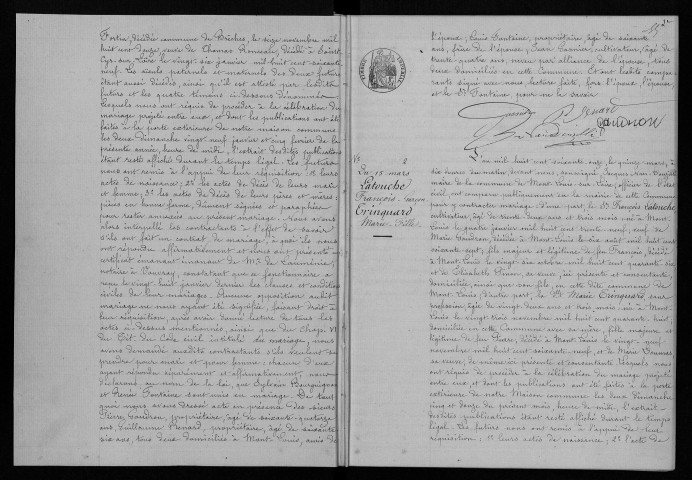 Fortin, décédée commune de Brèches, le seize novembre mil
huit cent douze, veuve de Thomas Ronceain, décédé à Saint
Cyr sur Loire le vingt six janvier mil huit cent soixante
neuf. Les aïeuls paternels et maternels des deux futurs
étant aussi décédés, ainsi qu'il est attesté par lesdits
futurs et les quatre témoins ci-dessous dénommés
Lesquels nous ont requis de procéder à la célébration du
mariage projeté entre eux, et dont les publications ont été
faites à la porte extérieure de notre maison commune
les deux dimanche vingt neuf janvier et cinq février de la
présente année, heure de midi, l'extrait desdites publications
étant resté affiché durant le temps légal. Les futurs
nous ont remis à l'appui de leur réquisition : 1º leurs
actes de naissance; 2º les actes de décès de leurs mari
et femme; 3º les actes de décès de leurs pères et mères;
pièces en bonne forme, dûment signées et paraphées
pour rester annexées au présent mariage. Nous avons
alors interpellé les contractants à l'effet de savoir
s'ils ont fait un contrat de mariage, à quoi ils nous
ont répondu affirmativement et alors ont présenté un
certificat émanant de Me de
notaire à Vouvray, constatant que ce fonctionnaire a
reçu le vingt huit janvier dernier les clauses et conditions
civiles de leur mariage. Aucune opposition audit
mariage ne nous ayant été signifiée, faisant droit à
leur réquisition, après avoir donné lecture de tous les
actes ci dessus mentionnés, ainsi que du Chap. VI
du Tit. du Code civil intitulé du mariage, nous
avons demandé auxdits contractants s'ils veulent se
prendre pour mari et pour femme; chacun d'eux
ayant répondu séparément et affirmativement, nous
déclarons, au nom de la loi, que Sylvain Bourguignon
et Renée Fontaine sont unis en mariage. De tout
quoi nous avons dressé acte en présence des sieurs
Pierre Gandron, propriétaire, âgé de soixante quatorze
ans, Guillaume Renard, propriétaire, âgé de soixante
six ans, tous deux domiciliés à Mont-Louis, amis de
l'épouse; Louis Fontaine, propriétaire, âgé de soixante
ans, frère de l'épouse; Jean cultivateur, âgé de
trente quatre ans, neveu par alliance de l'épouse, tous
deux domiciliés en cette Commune. Et ont lesdits compa-
rants signé avec nous lecture faite, hors l'époux, l'épouse
et le Sr Fontaine, pour ne le savoir
Renard
GAUDRON
Nº 2
Du 15 mars
Latouche
François. Garçon
&
Tringuard
Marie. Fille
L'an mil huit cent soixante onze, le quinze mars, à
dix heures du matin, devant nous, soussigné, Jacques
maire de la commune de Mont Louis sur Loire, officier de l'état
civil, ont comparu publiquement en la mairie de cette commune
pour y contracter mariage : d'une part, le Sr François Latouche,
cultivateur, âgé de trente deux ans et trois mois, né à Mont
Louis le quatre janvier mil huit cent trente neuf, veuf de
Marie Gaudron, décédée à Mont-Louis le six août mil huit cent
soixante sept, fils majeur et légitime de feu François, décédé
à Mont Louis le vingt six octobre mil huit cent quarante six,
et de Elisabeth Pinon, sa veuve, ici présente et consentante,
domiciliée, ainsi que son fils, en cette dite commune de
Mont Louis; d'autre part, la Dlle Marie Tringuard, sans
profession, âgée de vingt deux ans et trois mois, née à Mont
Louis le vingt trois novembre mil huit cent quarante huit,
domiciliée en cette Commune avec sa mère, fille majeure et
légitime de feu Pierre, décédé à Mont Louis le vingt neuf
novembre mil huit cent soixante neuf, et de Marie
sa veuve, ci présente et consentante. Lesquels nous
ont requis de procéder à la célébration du mariage projeté
entre eux, et dont les publications ont été faites à la porte
extérieure de notre Maison commune les deux Dimanche
cinq et douze du présent mois, heure de midi, l'extrait
desdites publications étant resté affiché durant le temps
légal. Les futurs nous ont remis à l'appui de leur
réquisition : 1º leurs actes de naissance; 2º l'acte de